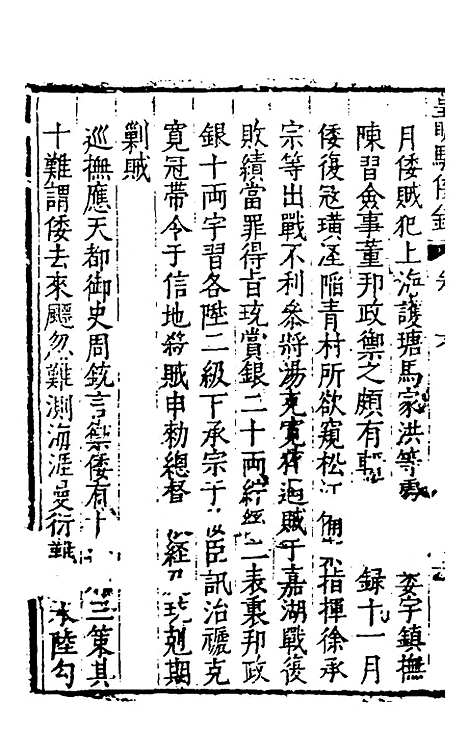 皇明馭倭錄
月倭賊犯上海護塘馬家洪等處 婁宇鎮撫
陳習僉事董邦政禦之頗有斬 錄十一月
倭復寇璜涇陷青村所欲窺松江 備 指揮徐承
宗等出戰不利參將湯克寬 追賊于嘉湖戰復
敗績當罪得旨玧賞銀二十兩紵絲二表裏邦政
銀十兩宇習各陞二級下承宗于 臣訊治禠克
寬冠帶令于信地殺賊申勑總督 經 玧剋期
剿賊
巡撫應天都御史周珫言禦倭有十 三策其
十難謂倭去來飈忽難測海涯曼衍難 水陸勾